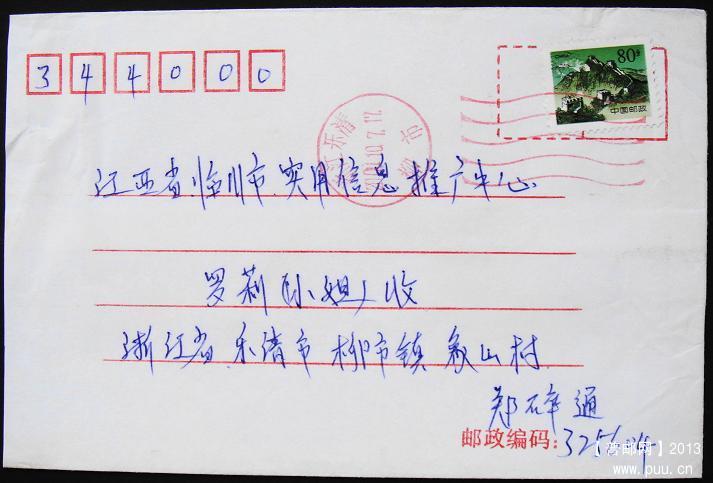 344000
80分
中国邮政
江西省临川市实用信息推广中心
罗莉(小姐)收
浙江省乐清市柳市镇象山村
郑碎通
邮政编码:325604
2013
www.puu.cn